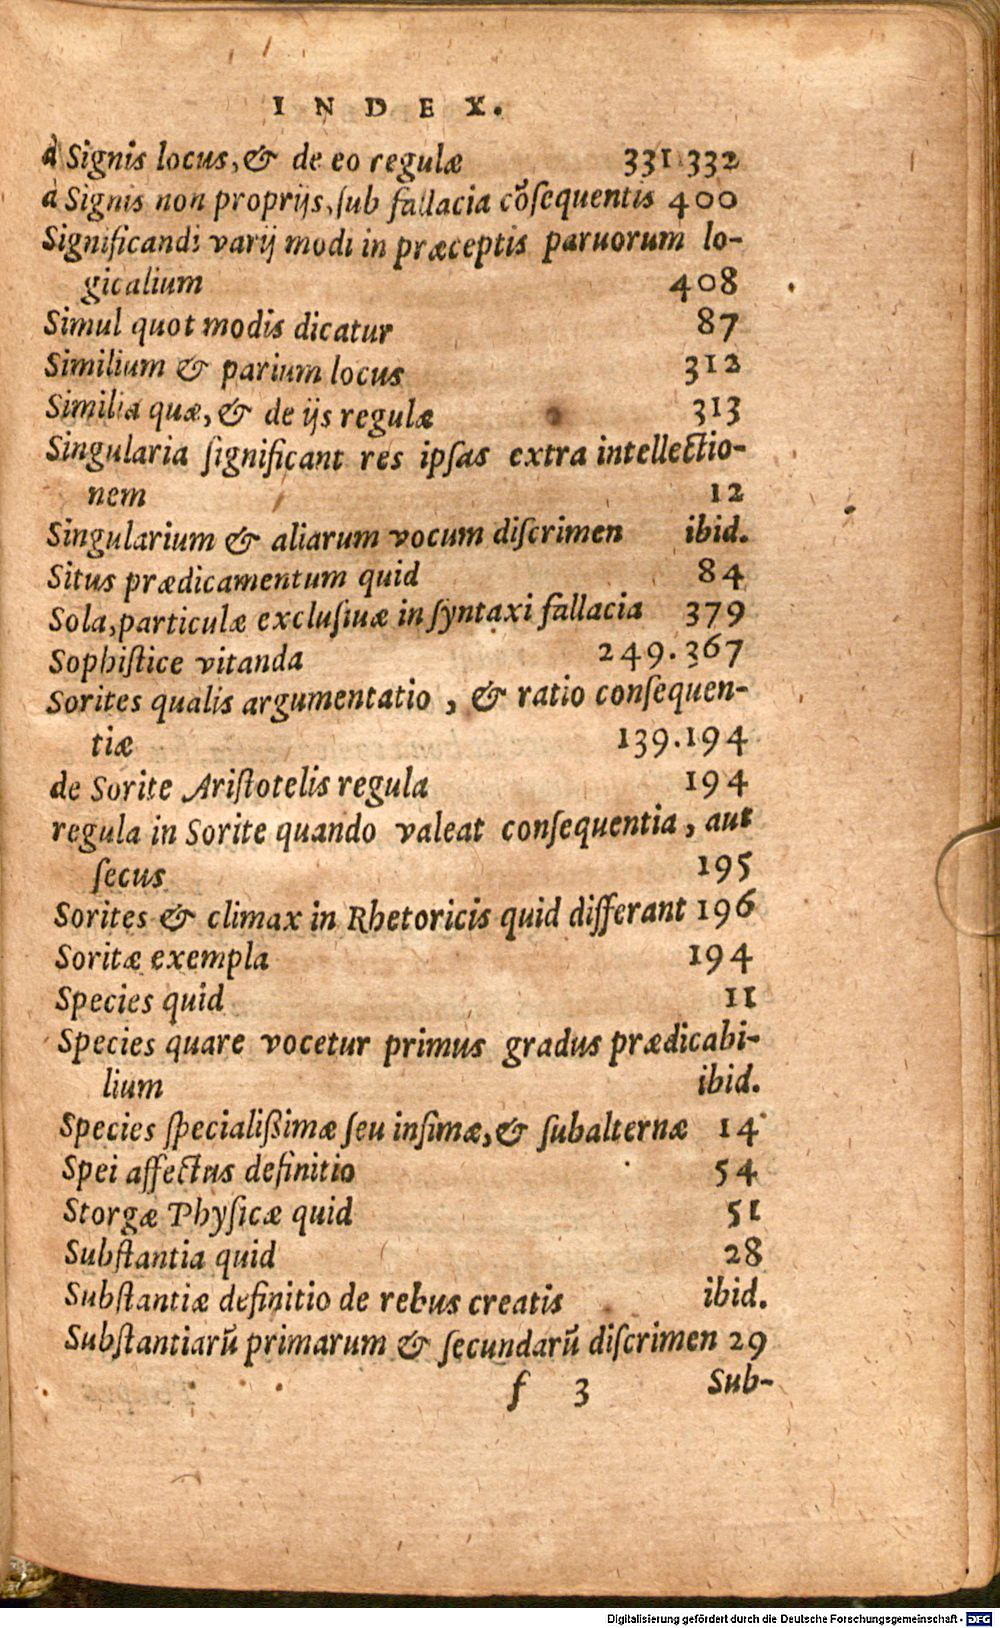 INDEX.
à Signis locus, & de eo regulæ 331.332
à Signis non proprijs, ſub fallacia cõſequentis 400
Significandi varij modi in præceptis paruorum lo-
gicalium 408
Simul quot modis dicatur 87
Similium & parium locus 312
Similia quæ, & de ijs regulæ 313
Singularia ſignificant res ipſas extra intellectio-
nem 12
Singularium & aliarum vocum diſcrimen ibid.
Situs prædicamentum quid 84
Sola, particulæ excluſiuæ in ſyntaxi fallacia 379
Sophiſtice vitanda 249.367
Sorites qualis argumentatio, & ratio conſequen-
tiæ 139.194
de Sorite Ariſtotelis regula 194
regula in Sorite quando valeat conſequentia, aut
ſecus 195
Sorites & climax in Rhetoricis quid differant 196
Soritæ exempla 194
Species quid 11
Species quare vocetur primus gradus prædicabi-
lium ibid.
Species ſpecialißimæ ſeu infimæ, & ſubalternæ 14
Spei affectus definitio 54
Storgæ Phyſicæ quid 51
Subſtantia quid 28
Subſtantiæ definitio de rebus creatis ibid.
Subſtantiarũ primarum & ſecundarũ diſcrimen 29
f 3 Sub-
Digitalisierung gefördert durch die Deutsche Forschungsgemeinschaft - DFG